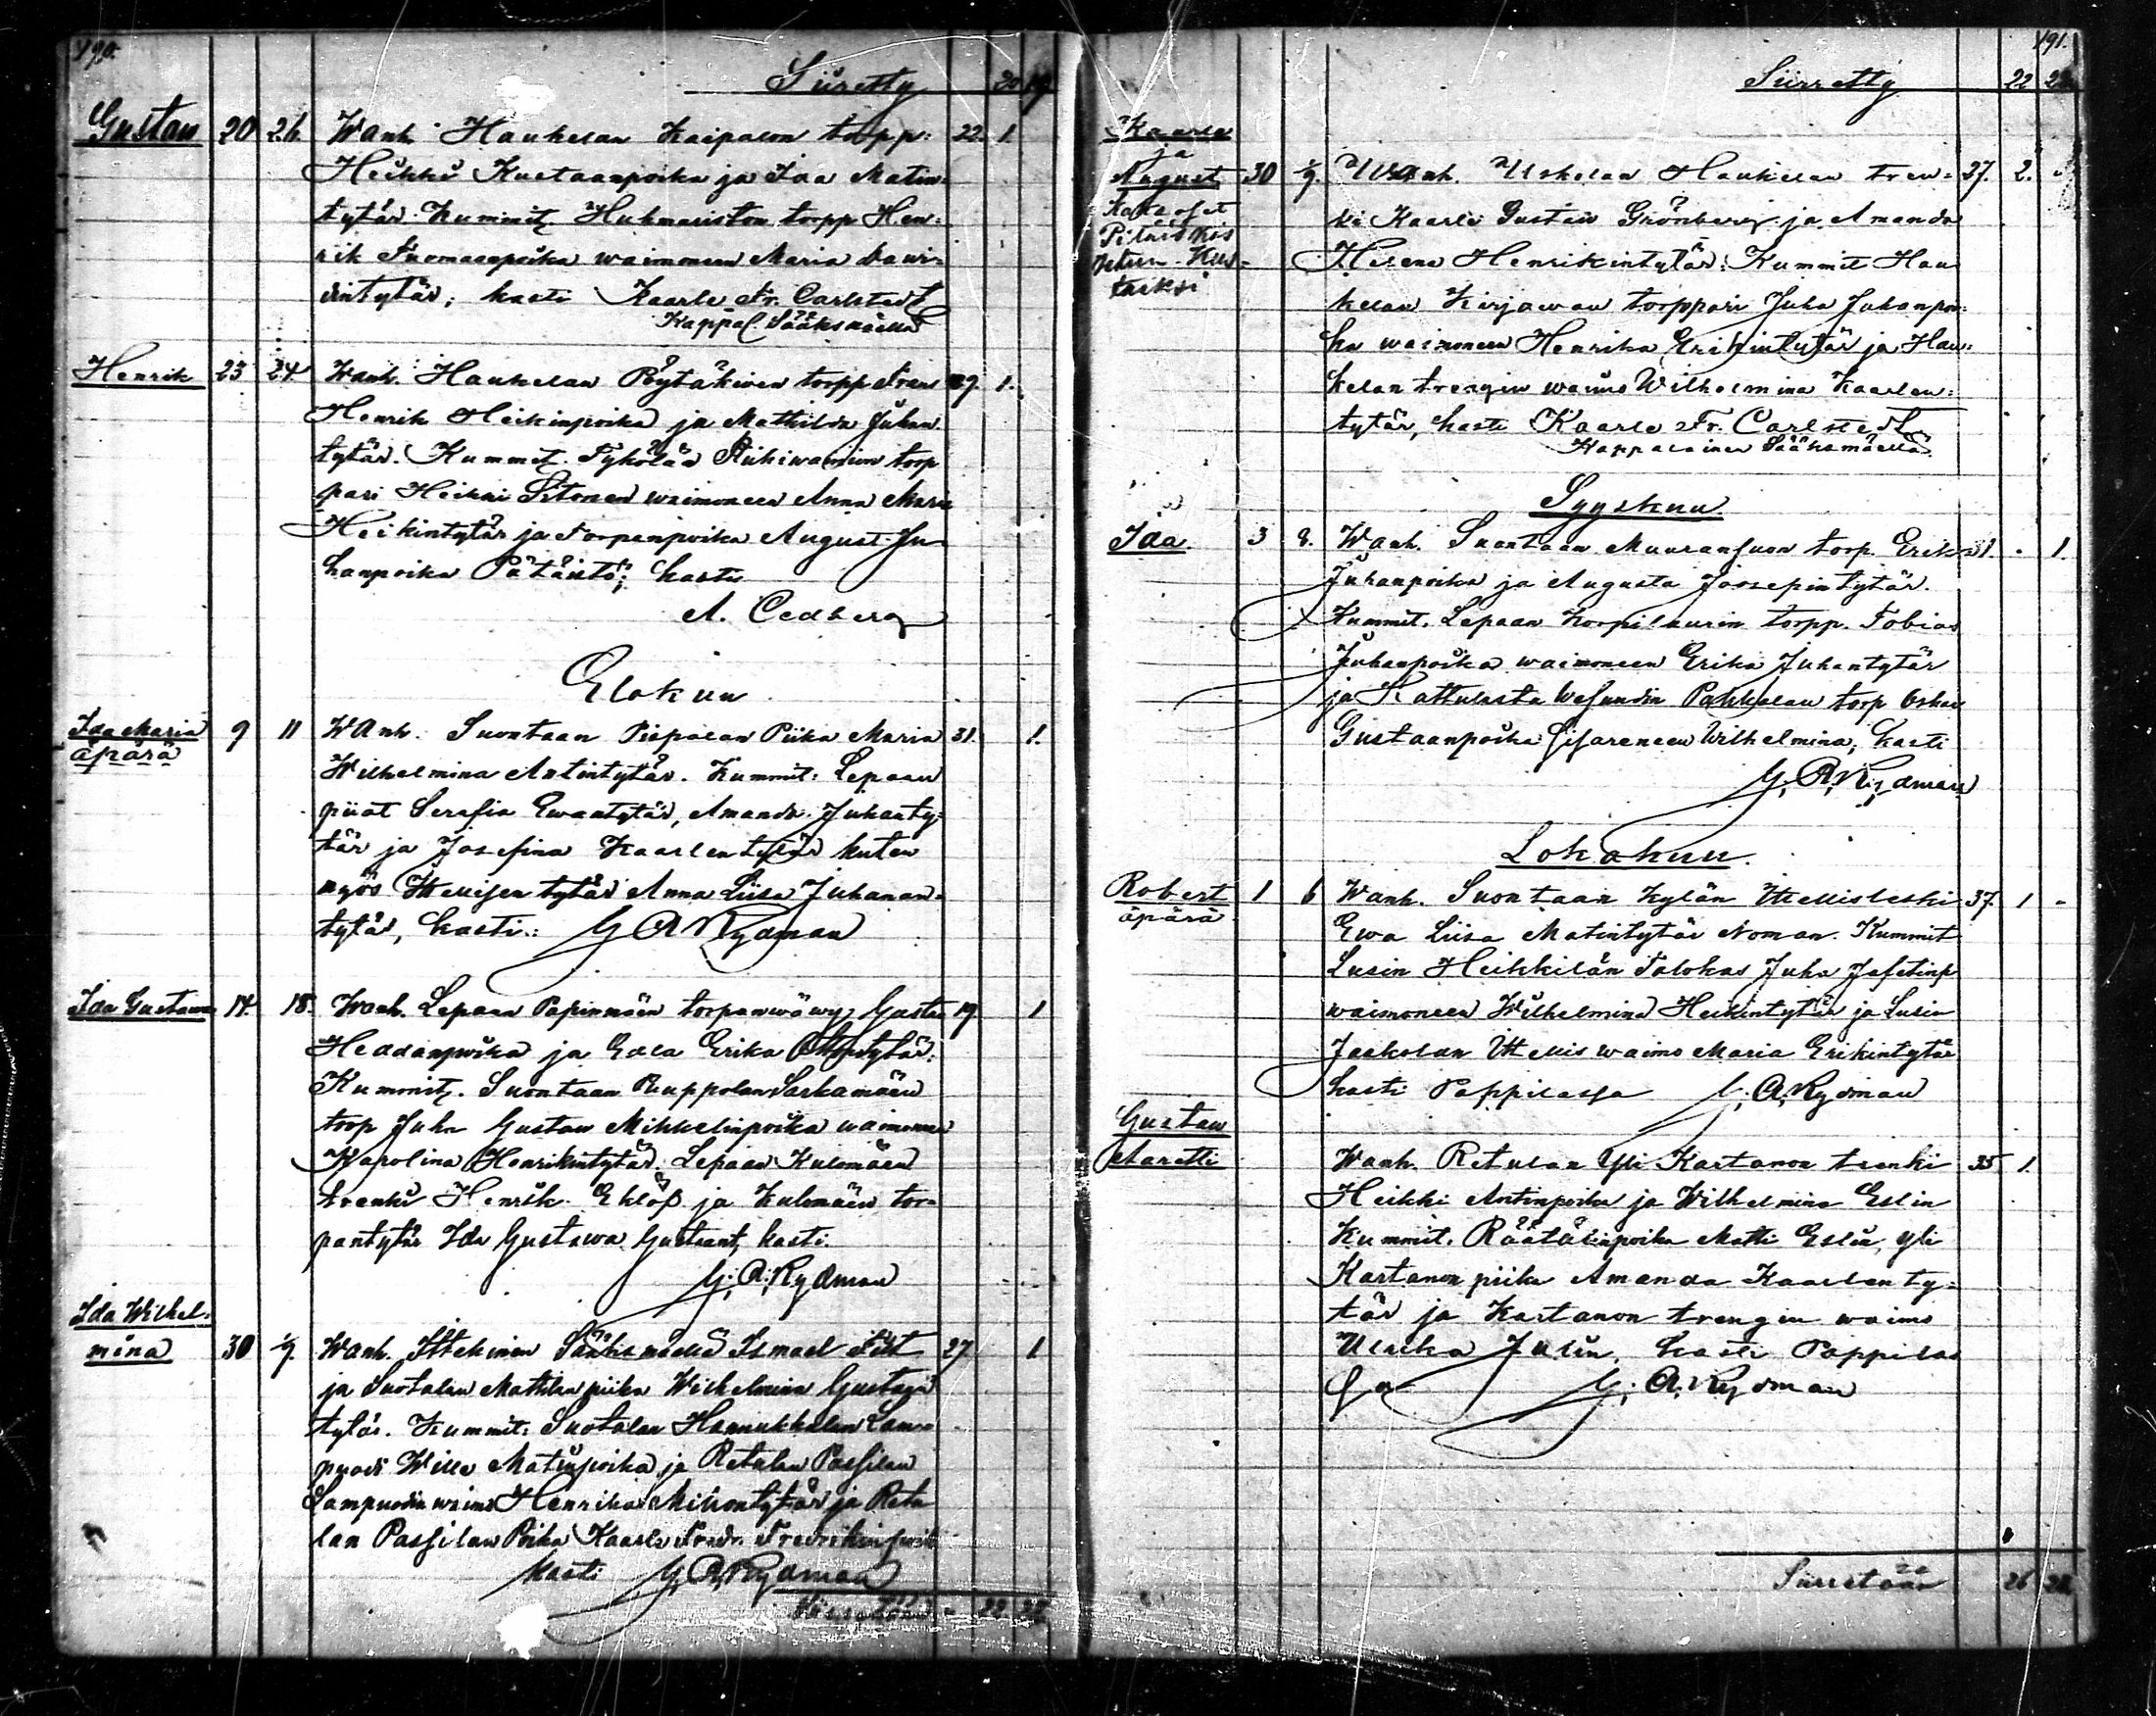 190.
Siiretty 20 19
Gustav 20 26. Wanh. Haukelan Kaipalon torpp: 22. 1.
Heikki Kustaanpoika ja Ida Matin-
tytär. Kummit Huhmariston torpp Hen-
rik Tuomaanpoika waimoneen Maria Dawi-
dintytär; kasti Kaarle Fr. Carlstedt
Kappal. Sääksmäellä
Henrik 23 24 Wanh. Haukelan Pöytäkiven torpp Frans 29. 1.
Henrik Heikinpoika ja Mathilda Juhan
tytär. Kummit. Tykölän torp
pari Heikki waimoneen Anna Maria
Heikintytär ja Torpanpoika August Ju-
hanpoika kasti
A. Cedberg
Elokuu
Ida Maria 9 11 Wanh. Suontaan Piipalan Piika Maria 31. 1.
äpärä
Wilhelmina Antintytär. Kummit: Lepaan
piiat Serafia Ewantytär, Amanda Juhanty-
tär ja Josefina Kaarlentytär kuten
myös Itsellisen tytär Anna Liisa Juhanan-
tytär, kasti: G A Rydman
Ida Gustawa 14. 18. Wanh. Lepaan Papinmäen torpanwäwy Gusta 19 1
Heddanpoika ja Edla Erika
Kummit. Suontaan Ruppolan Sarkamäen
torp Juha Gustaw Mikkelinpoika waimoneen
Karolina Henrikintytär. Lepaan Kulomäen
trenki Henrik Eklöf ja Kulomäen tor-
pantytär Ida Gustawa Gustaant, kasti.
G. A. Rydman
Ida Wilhel-
mina 30 1/9. Wanh. Itsekinen Sääksmäellä Ismael 27 1
ja Suotalan Mattilan piika Wilhelmina Gustaw
tytär. Kummit: Suotalan Hannukkalan Lam-
puodi Wille Matinpoika ja Retulan Passilan
Lampuodin waimo Henrika Mikontytär ja Retu
lan Passilan Poika Kaarle Fredr. Fredrikinpoik
kasti G. A. Rydman
Siirretään 22. 22.
191.
Siirretty 22 22
Kaarle
ja
August 30 1/9. Wanh. Uskelan Haukelan tren- 27. 2.
Kaksoset
ki Kaarle Gustaw Grönberg ja Amanda
Helena Henrikintytär: Kummit Hau
kelan Kirjawan torppari Juha Juhanpoi-
ka waimoneen Henrika Erikintytär ja Hau-
kelan trengin waimo Wilhelmina Kaarlen-
tytär, kasti Kaarle Fr. Carlstedt
Kappalainen Sääksmäellä.
Syyskuu
Ida. 3 8. Wanh. Suontaan Muuransuon torp. Erik 31. 1.
Juhanpoika ja Augusta Joosepintytär.
Kummit. Lepaan Korpilaurin torpp. Tobias
Juhanpoika waimoneen Erika Juhantytär
ja Kattulasta Wesundin Pakkalan torp Oskar
Gustaanpoika sisareneen Wilhelmina; kasti
G. A. Rydman
Lokakuu.
Robert 1 6 Wanh. Suontaan kylän Itsellisleski 37. 1
äpärä
Ewa Liisa Matintytär Noman. Kummit
Lusin Heikkilän Talokas Juha Jafetinp
waimoneen Wilhelmina Heikintytär ja Lusin
Jaakolan Itsellis waimo Maria Erikintytär
kasti Pappilassa G. A. Rydman
Gustaw
Aretti Wanh. Retulan Yli Kartanon trenki 35 1.
Heikki Antinpoika ja Wilhelmina Eslin
Kummit. Räätälinpoika Matti Eslin, Yli
Kartanon piika Amanda Kaarlenty-
tär ja Kartanon trengin waimo
Ulrika Julin. kasti Pappilas
sa G. A. Rydman
Siirretään 26